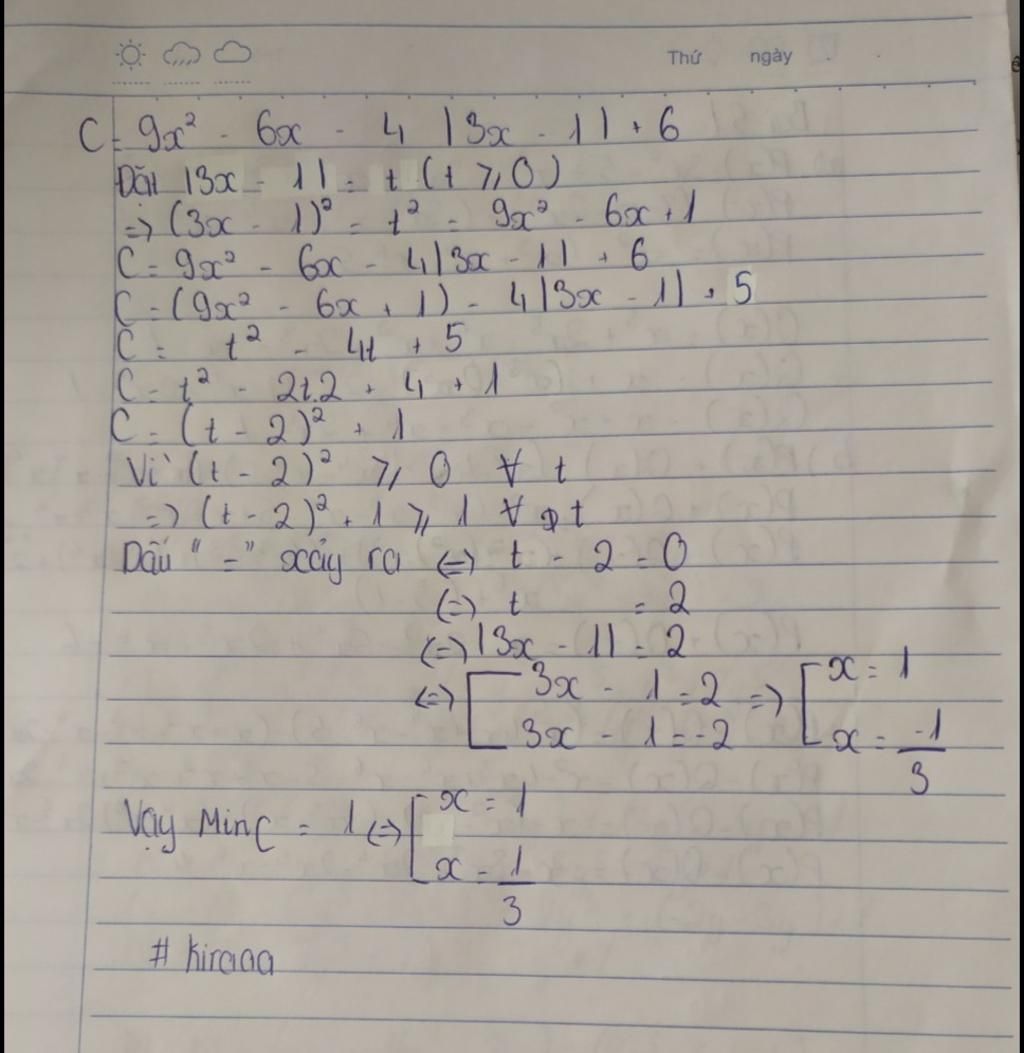 Thứ ngày
C = 9x² - 6x - 4 |3x - 1| + 6
Đặt |3x - 1| = t (t ≥ 0)
=> (3x - 1)² = t² = 9x² - 6x + 1
C = 9x² - 6x - 4|3x - 1| + 6
C = (9x² - 6x + 1) - 4|3x - 1| + 5
C = t² - 4t + 5
C = t² - 2t.2 + 4 + 1
C = (t - 2)² + 1
Vì (t - 2)² ≥ 0 ∀ t
=> (t - 2)² + 1 ≥ 1 ∀ t
Dấu "=" xảy ra <=> t - 2 = 0
<=> t = 2
<=> |3x - 1| = 2
<=> [ 3x - 1 = 2 => [ x = 1
3x - 1 = -2 x = -1/3
Vậy Min C = 1 <=> [ x = 1
x = 1/3
# kiraaa